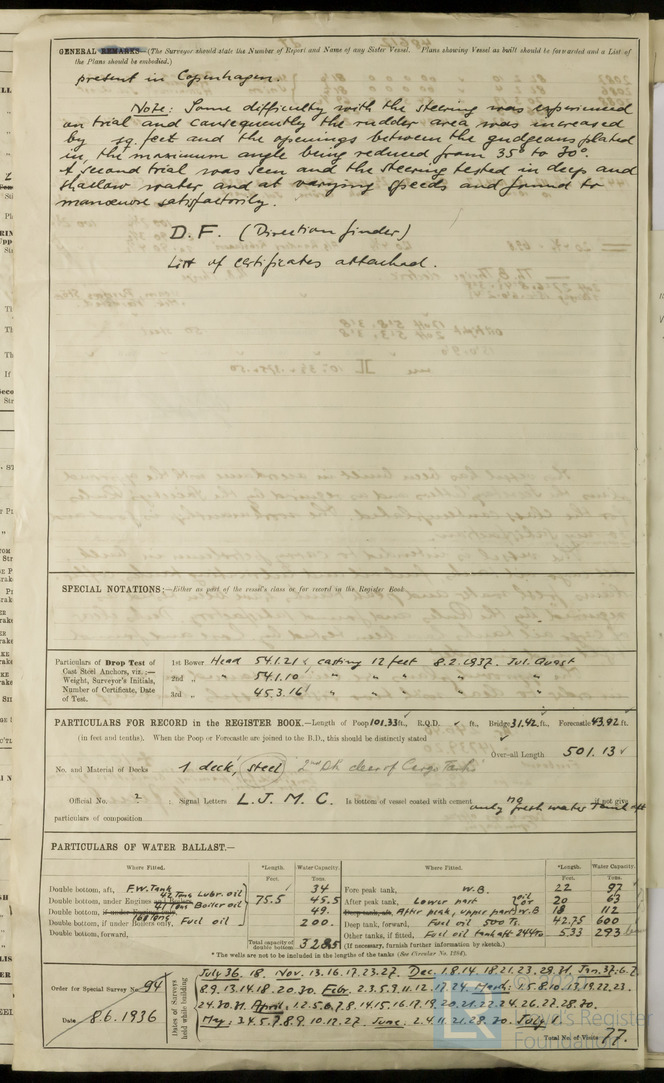 GENERAL REMARKS—(The Surveyor should state the Number of Report and Name of any Sister Vessel. Plans showing Vessel as built should be forwarded and a List of
the Plans should be embodied.)
present in Copenhagen.
Note: Some difficulty with the steering was experienced
on trial and consequently the rudder area was increased
by sq. feet and the openings between the gudgeons plated
in, the maximum angle being reduced from 35° to 30°.
A second trial was seen and the steering tested in deep and
shallow water and at varying speeds and found to
manoevre satisfactorily.
D.F. (Direction finder)
List of certificates attached.
SPECIAL NOTATIONS:—Either as part of the vessel's class or for record in the Register Book
Particulars of Drop Test of
Cast Steel Anchors, viz.:—
Weight, Surveyor's Initials,
Number of Certificate, Date
of Test.
1st Bower Head 54.1.21 casting 12 feet 8.2.1937. Jul. Quast
2nd „ „ 54.1.10 „ „ „ „ „
3rd „ „ 45.3.16 „ „ „ „ „
PARTICULARS FOR RECORD in the REGISTER BOOK.—Length of Poop 101.33 ft., R.Q.D. ✓ ft., Bridge 31.42 ft., Forecastle 43.92 ft.
(in feet and tenths). When the Poop or Forecastle are joined to the B.D., this should be distinctly stated
Over-all Length 501.13 ✓
No. and Material of Decks 1 deck, steel 2nd Dk clear of Cargo Tanks
Official No. ? Signal Letters L. J. M. C. Is bottom of vessel coated with cement no if not give
only fresh water tank aft
particulars of composition
PARTICULARS OF WATER BALLAST.—
Where Fitted. *Length. Water Capacity. Where Fitted. *Length. Water Capacity.
Feet. Tons. Feet. Tons.
Double bottom, aft, F.W. Tank 34 Fore peak tank, W.B. 22 97
Double bottom, under Engines and Boilers 42 Tons Lubr. oil 75.5 45.5 After peak tank, Lower part oil or 20 63
Double bottom, if under Engines only 41 Tons Boiler oil 49. Deep tank, aft, After peak, upper part W.B 18 112
Double bottom, if under Boilers only, 168 Tons Fuel oil 200. Deep tank, forward, Fuel oil 500 Ts 42.75 600
Double bottom, forward, Other tanks, if fitted, Fuel oil tank aft 244 To 5.33 293
Total capacity of double bottom 328.5 (If necessary, furnish further information by sketch.)
* The wells are not to be included in the lengths of the tanks (See Circular No. 1284).
Order for Special Survey No. 94
Date 8.6.1936
Dates of Surveys held while building
July 36. 18. Nov. 13.16.17.23.27. Dec. 1.8.14.18.21.23.28.31. Jan. 37. 6.7.
8.9.13.14.18.20.30. Febr. 2.3.5.9.11.12.17.24. March: 1.5.8.10.13.19.22.23.
24.30.31. April: 1.2.5.6.7.8.14.15.16.17.19.20.21.22.24.26.27.28.30.
May: 3.4.5.7.8.9.10.17.27. June. 2.4.11.21.28.30. July 1.
Total No. of Visits 77.
Lloyd's Register
Foundation